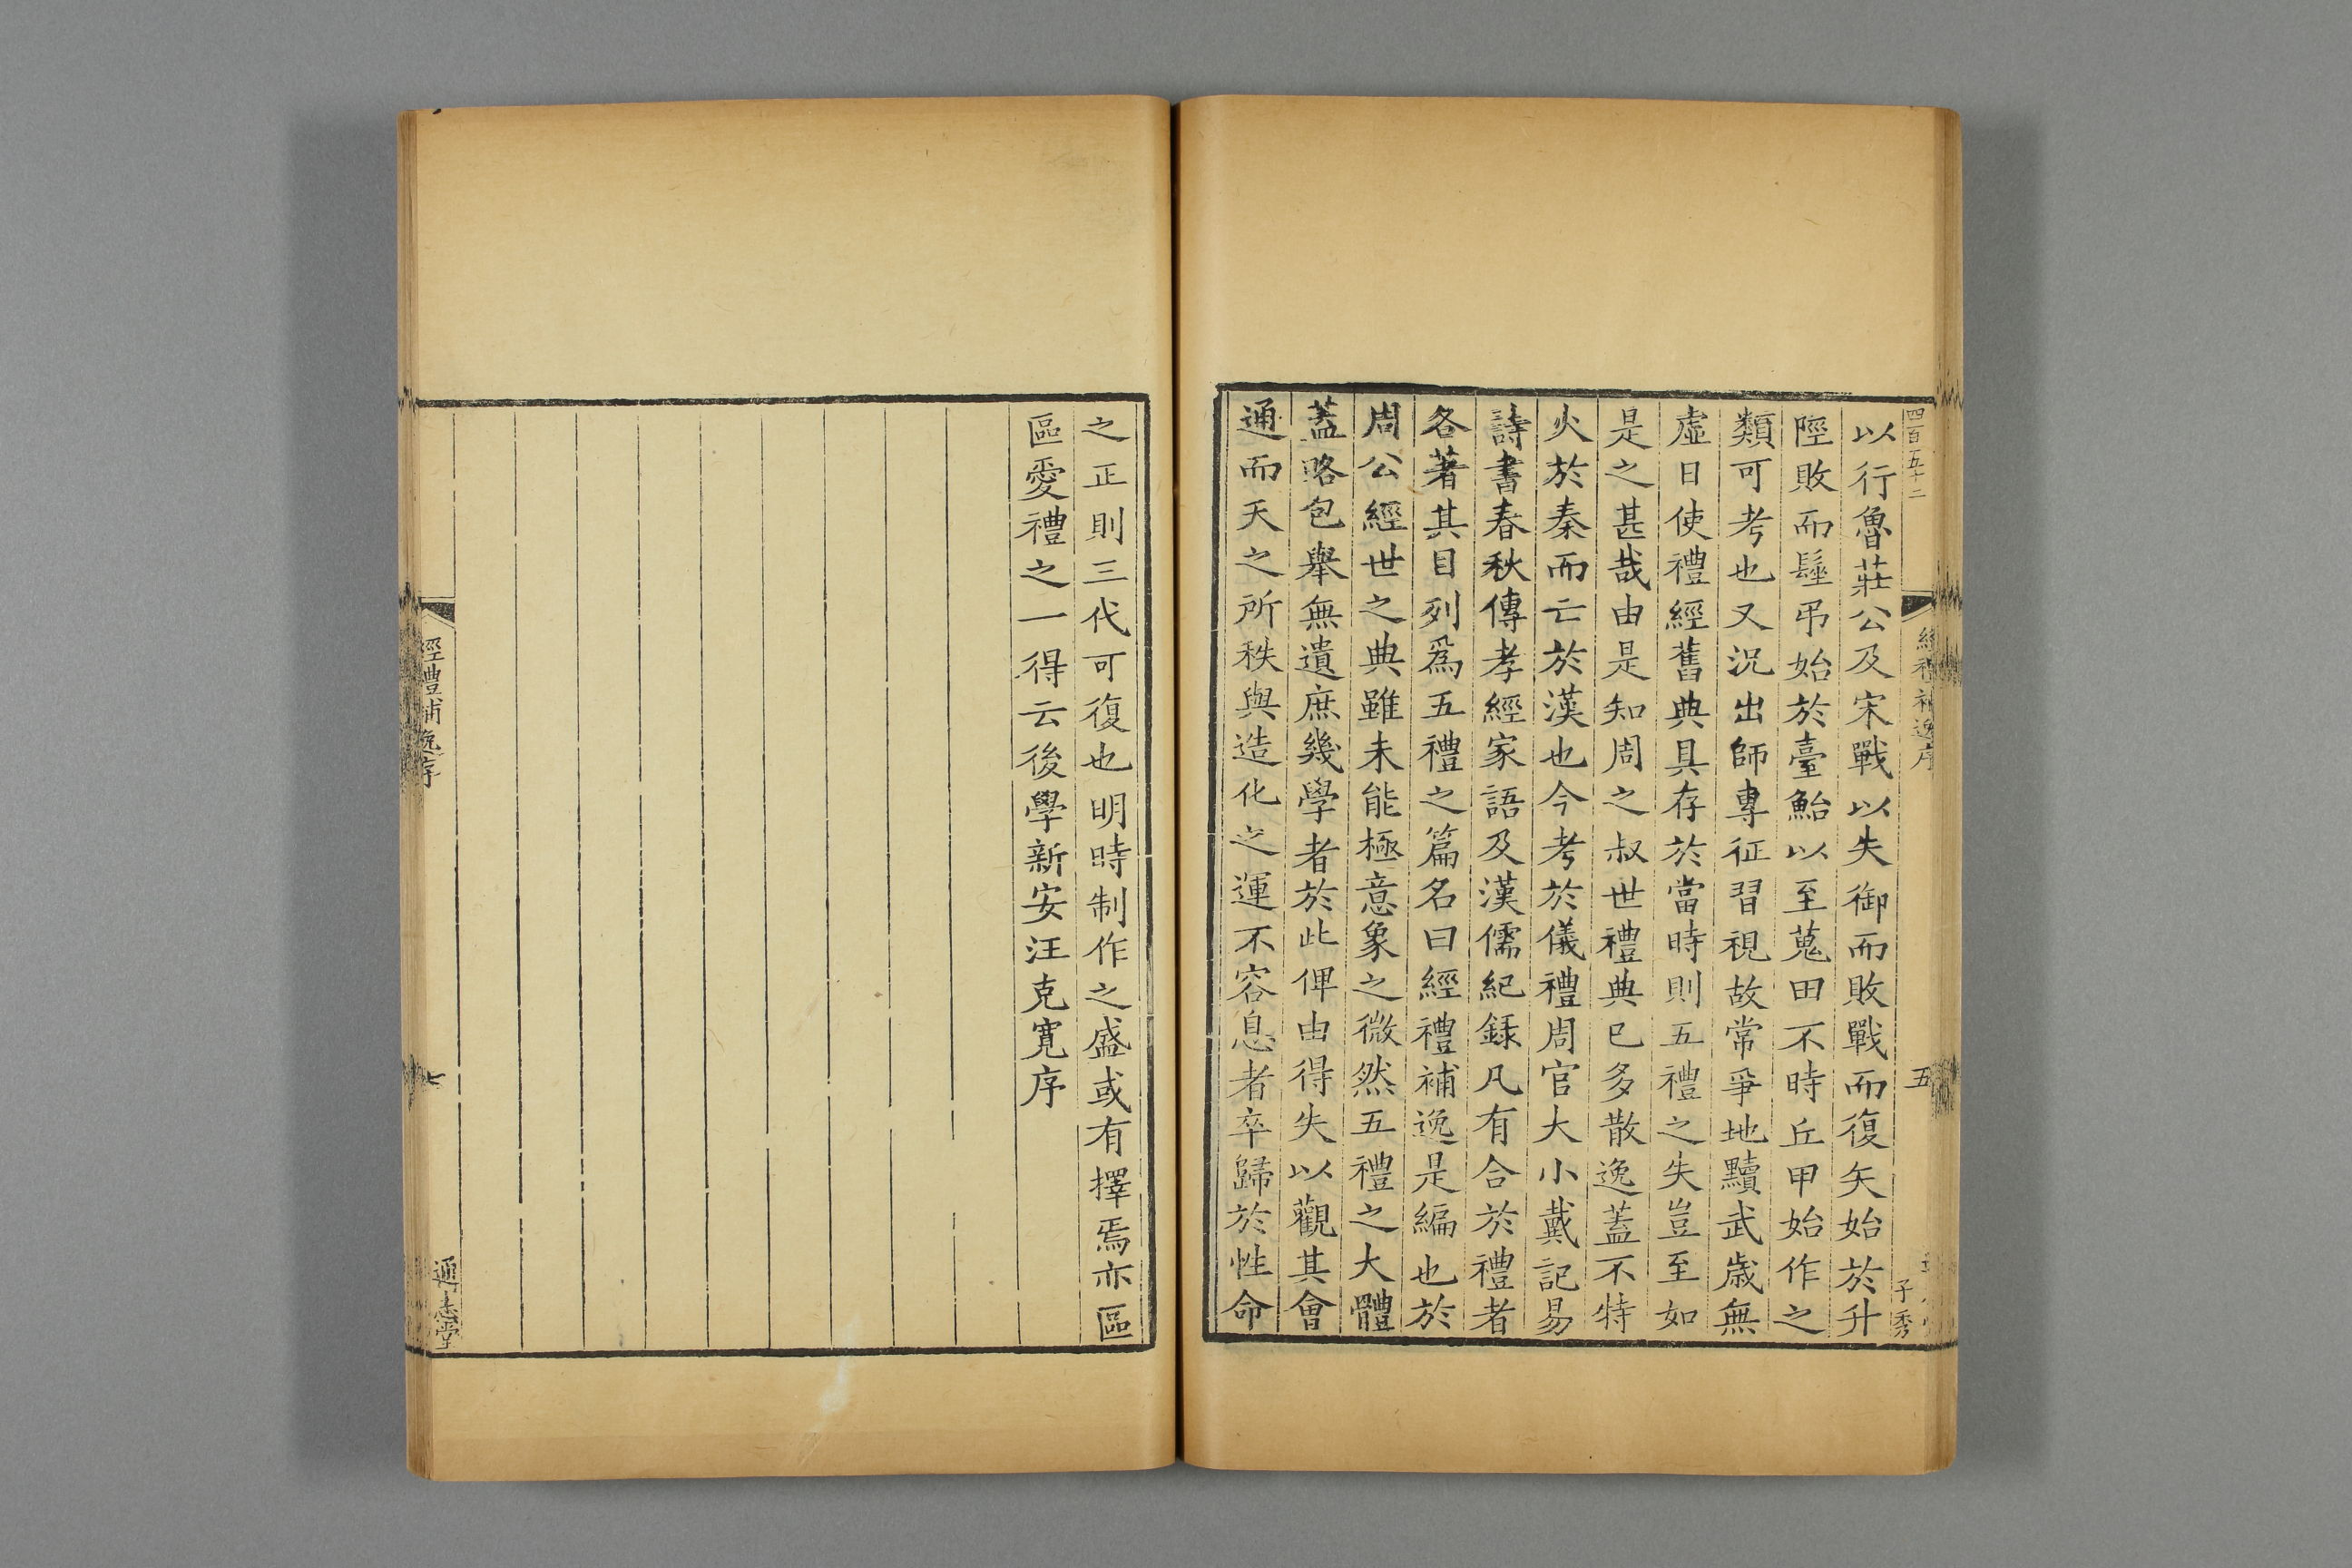 四百五十二
以行魯莊公及宋戰以失御而敗戰而復矢始於升
陘敗而髽弔始於臺鮐以至蒐田不時丘甲始作之
類可考也又況出師專征習視故常爭地黷武歲無
虛日使禮經舊典具存於當時則五禮之失豈至如
是之甚哉由是知周之叔世禮典已多散逸蓋不特
火於秦而亡於漢也今考於儀禮周官大小戴記易
詩書春秋傳孝經家語及漢儒紀録凡有合於禮者
各著其目列爲五禮之篇名曰經禮補逸是編也於
周公經世之典雖未能極意象之微然五禮之大體
蓋略包舉無遺庶幾學者於此俾由得失以觀其會
通而天之所秩與造化之運不容息者卒歸於性命
經禮補逸序
五
子秀
之正則三代可復也明時制作之盛或有擇焉亦區
區愛禮之一得云後學新安汪克寬序
經禮補逸序
通志堂